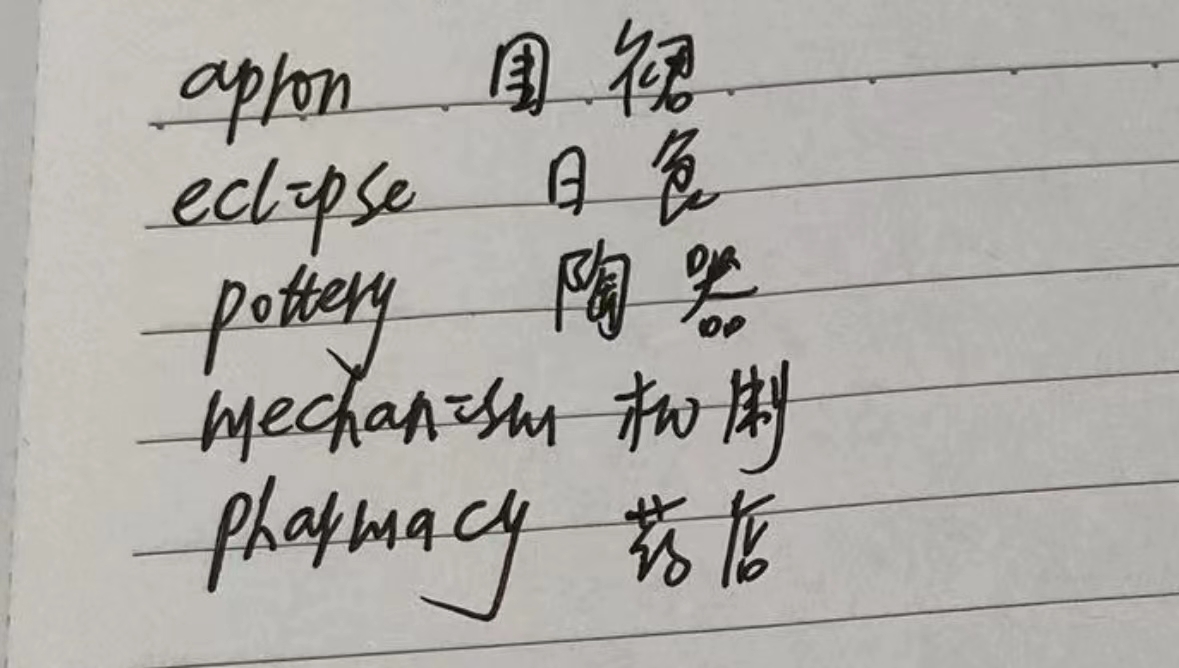 apron 围裙
eclipse 日食
pottery 陶器
mechanism 机制
pharmacy 药店